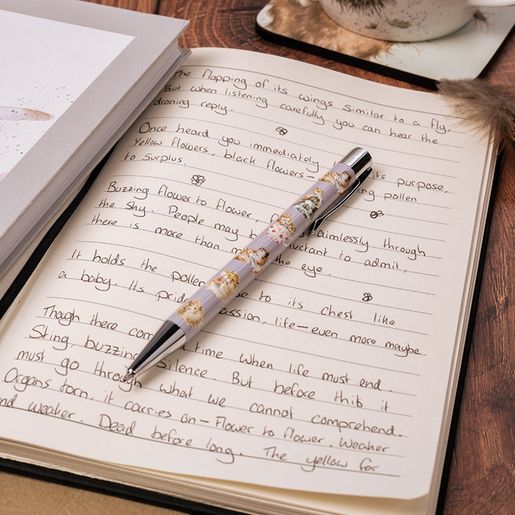 The flapping of its wings similar to a fly.
But when listening carefully you can hear the
droning reply.
Once heard you immediately its purpose,
Yellow flowers, black flowers— pollen
to surplus.
Buzzing flower to flower, aimlessly through
the sky. People may be reluctant to admit,
there is more than the eye.
It holds the pollen to its chest like
a baby. Its pride passion, life—even more maybe.
Though there comes time when life must end
Sting, buzzing silence. But before this it
must go through what we cannot comprehend.
Organs torn, it carries on—flower to flower. Weaker
and weaker. Dead before long. The yellow for